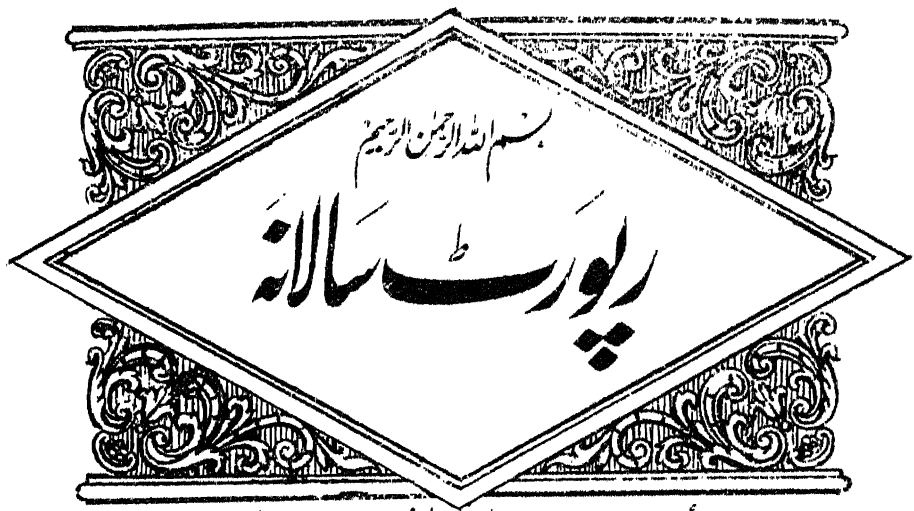 بسم اللہ الرحمٰن الرحیم
رپورٹ سالانہ